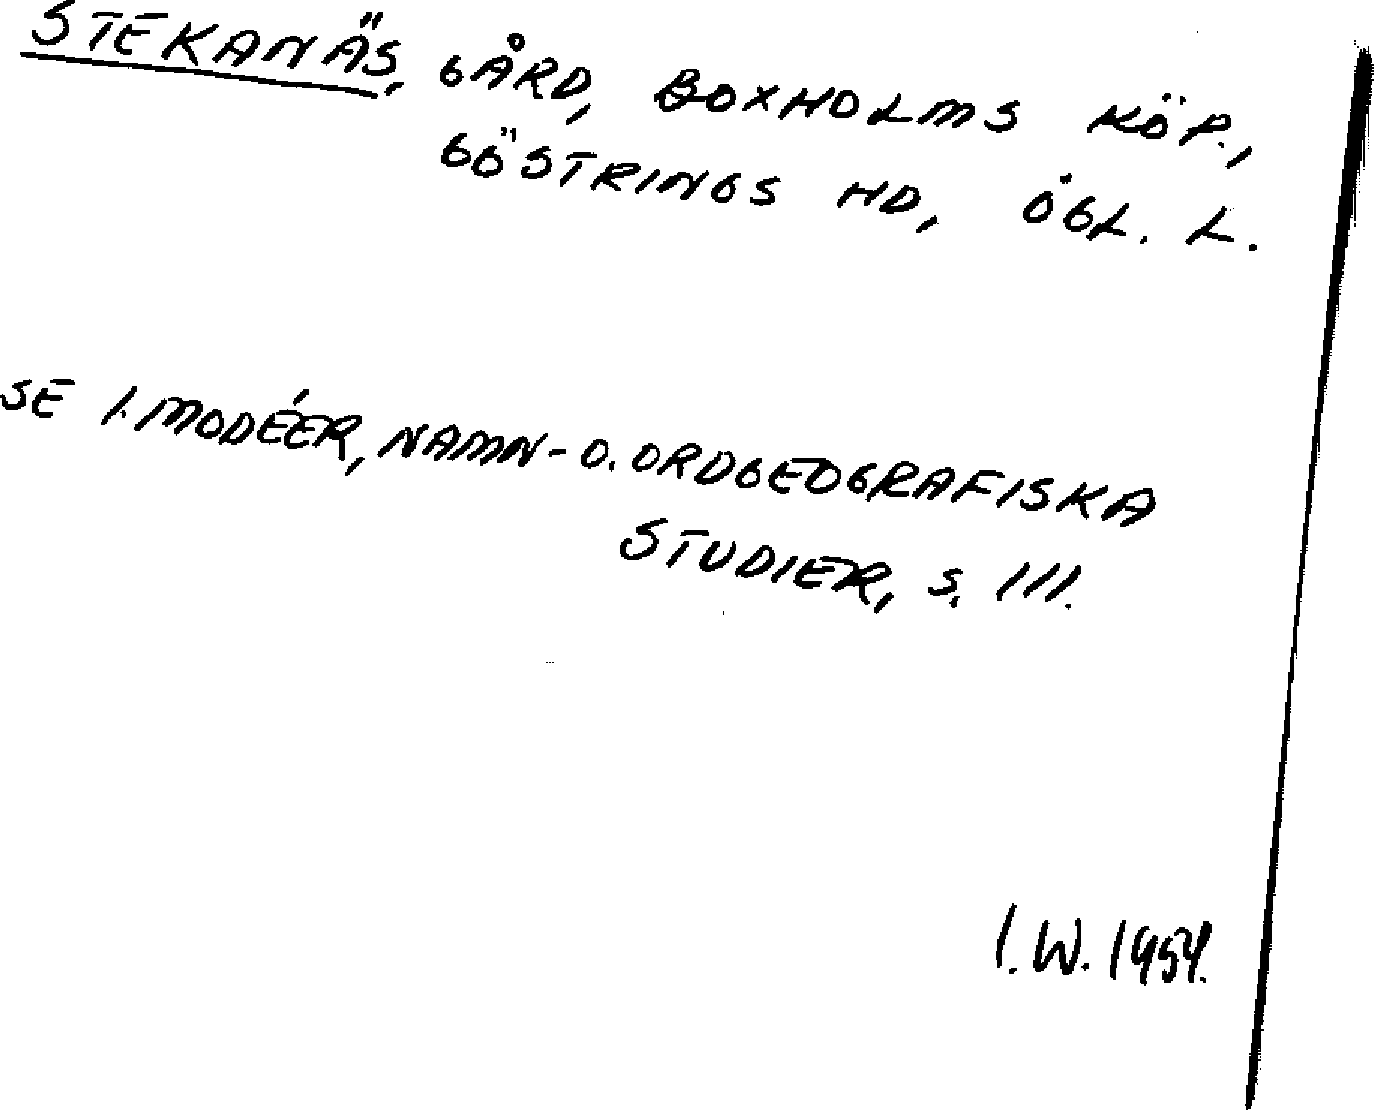 STEKANÄS, GÅRD, BOXHOLMS KÖP.,
GÖSTRINGS HD, ÖGL. L.
SE I. MODÉER, NAMN- O. ORDGEOGRAFISKA
STUDIER, S. 111.
I. W. 1954.